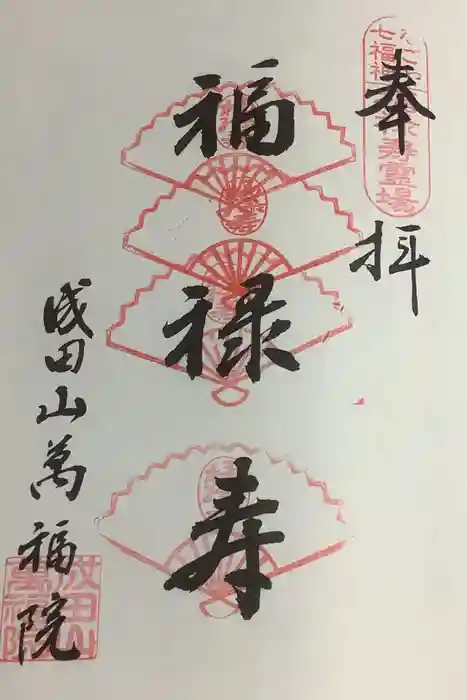 奉拝
福禄寿
成田山萬福院
七福神
寿霊場
成田山
萬福院